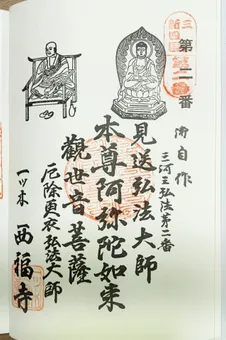 三河新四国
第二番
御自作
三河三弘法第二番
見送弘法大師
本尊阿弥陀如来
觀世音菩薩
厄除更衣弘法大師
一ツ木 西福寺